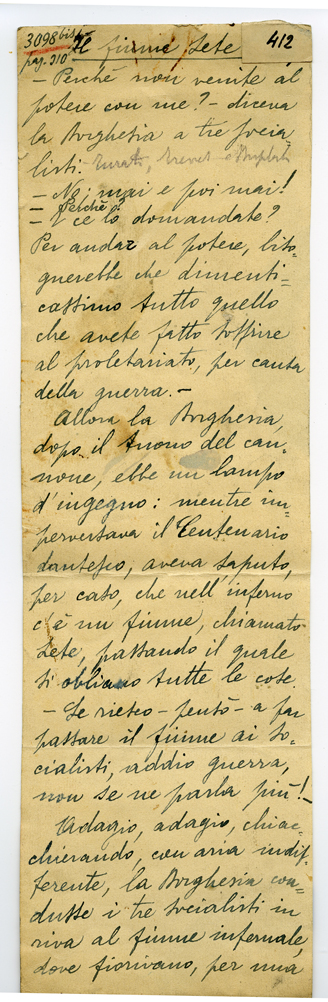 3098 bis
pag. 310
Il fiume Lete
412
— Perchè non venite al
potere con me? — diceva
la Borghesia a tre socia
listi: Turati, Treves e
— No; mai e poi mai!
— Perchè?
— E ce lo domandate?
Per andar al potere, biso-
gnerebbe che dimenti=
cassimo tutto quello
che avete fatto soffrire
al proletariato, per causa
della guerra. —
Allora la Borghesia,
dopo il tuono del can-
none, ebbe un lampo
d'ingegno: mentre im-
perversava il Centenario
dantesco, aveva saputo,
per caso, che nell'inferno
c'è un fiume, chiamato
Lete, passando il quale
si obliano tutte le cose.
— Se riesco — pensò — a far
passare il fiume ai so-
cialisti, addio guerra,
non se ne parla più! —
Adagio, adagio, chiac-
chierando, con aria indif-
ferente, la Borghesia con-
dusse i tre socialisti in
riva al fiume infernale,
dove fiorivano, per una